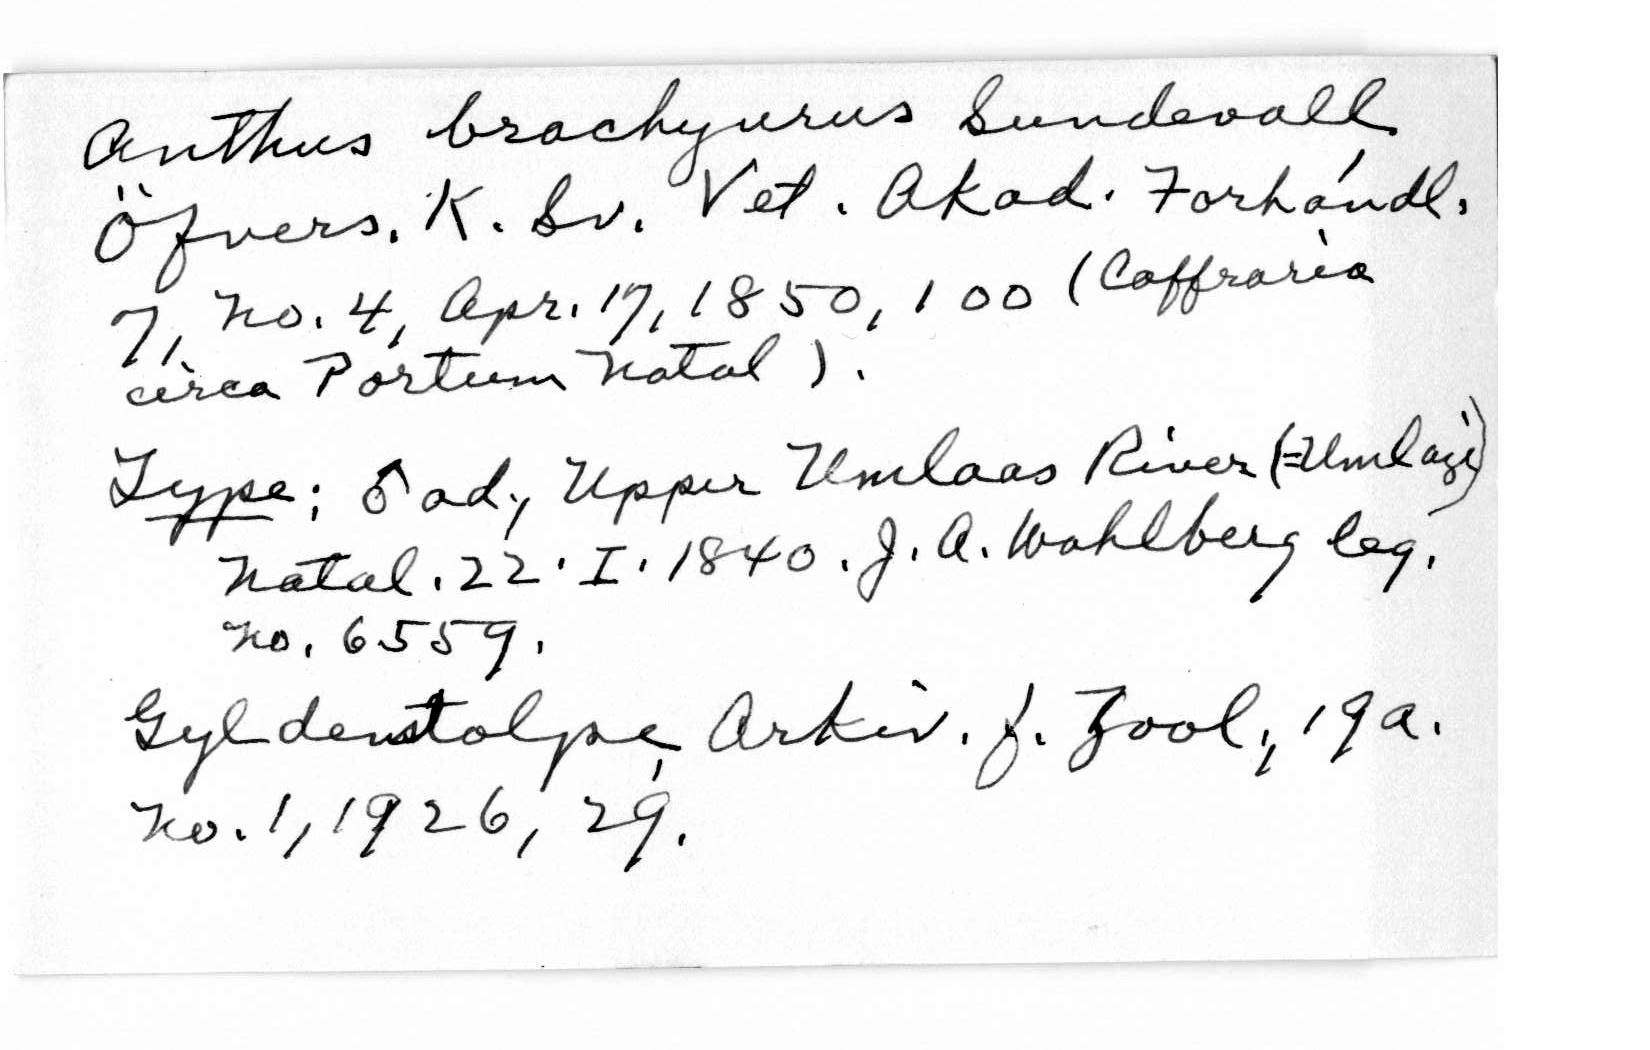 Anthus brachyurus Sundevall
Öfvers. K. Sv. Vet. Akad. Forhándl.
7, No. 4, Apr. 17, 1850, 100 (Caffraria
circa Portum Natal).
Type: ♂ ad, Upper Umlaas River (=Umlazi)
Natal. 22. I. 1840. J. A. Wahlberg leg.
No. 6559.
Gyldenstolpe, Arkiv. f. Zool., 19a.
No. 1, 1926, 29.